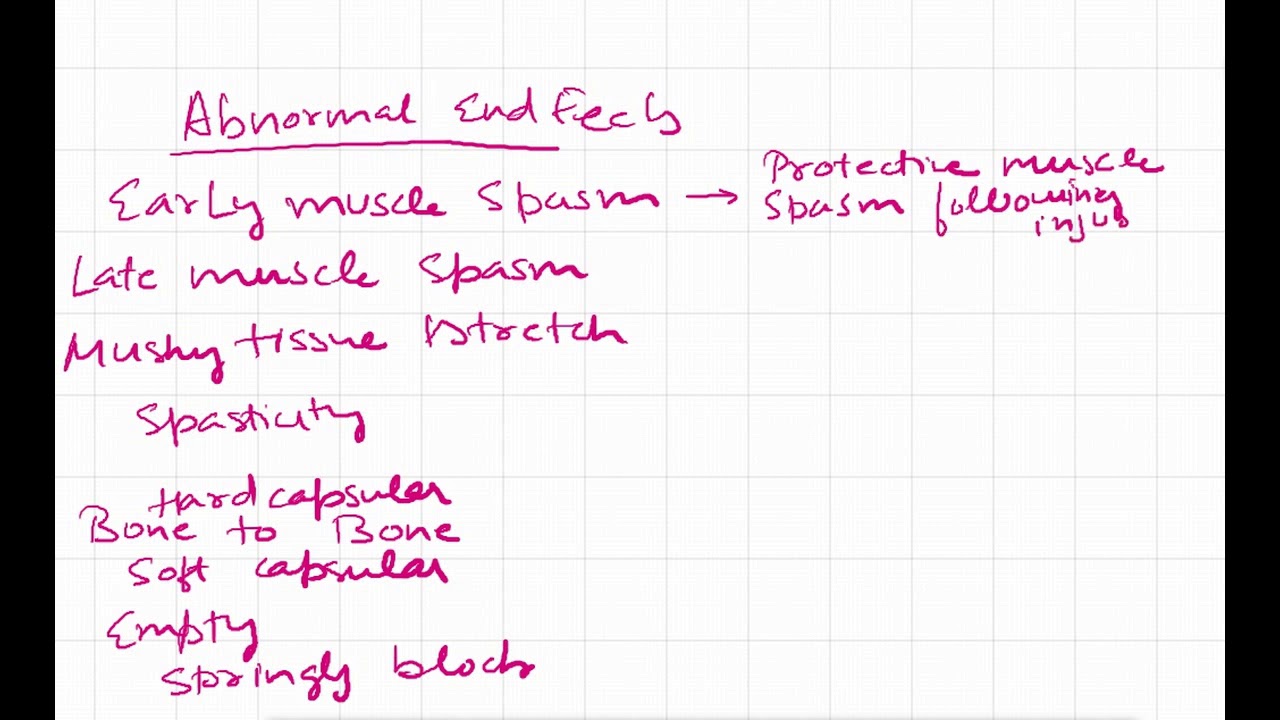 Abnormal End Feels
Early muscle spasm → Protective muscle
spasm following
injus
Late muscle spasm
Mushy tissue stretch
Spasticity
Hard capsular
Bone to Bone
Soft capsular
Empty
Springly block